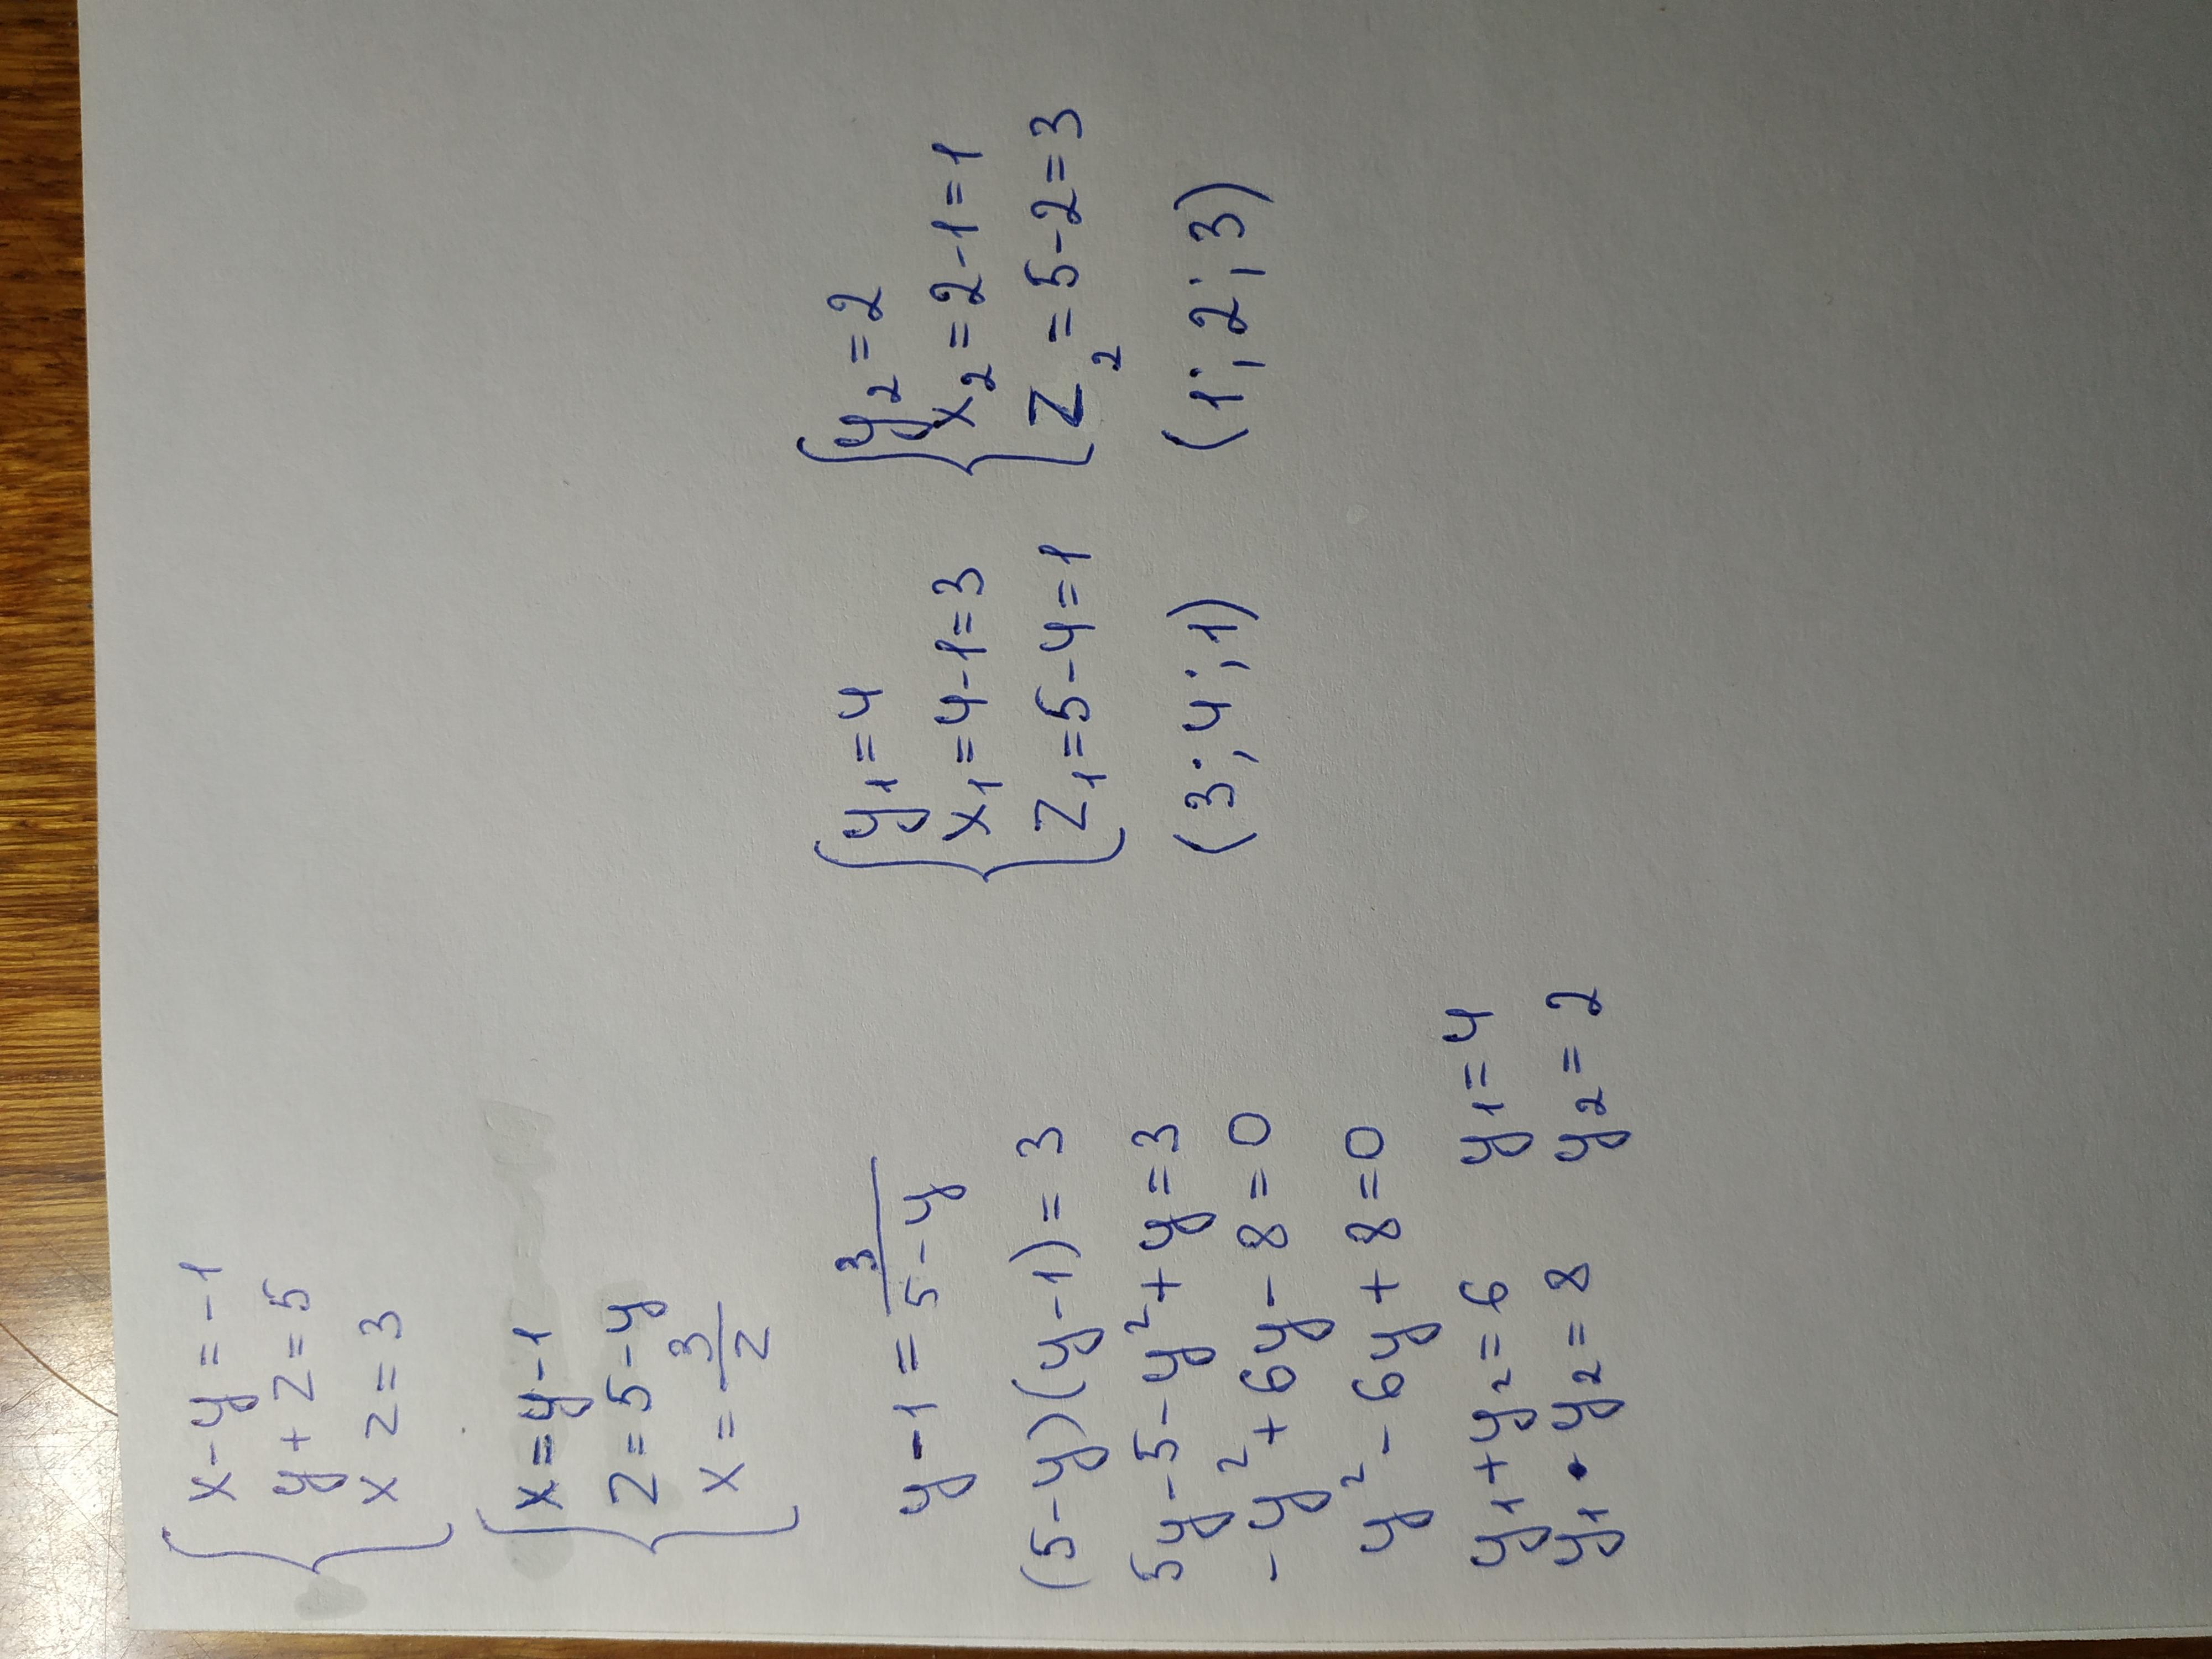 x-y=-1
y+z=5
xz=3
x=y-1
z=5-y
x=3/z
y-1=3/(5-y)
(5-y)(y-1)=3
5y-5-y²+y=3
-y²+6y-8=0
y²-6y+8=0
y₁+y₂=6 y₁=4
y₁•y₂=8 y₂=2
y₁=4
x₁=4-1=3
z₁=5-4=1
(3;4;1)
y₂=2
x₂=2-1=1
z₂=5-2=3
(1;2;3)